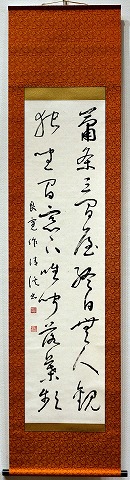 蕭条三間屋終日無人観
独坐閒窓下唯聞落葉頻
良寛作